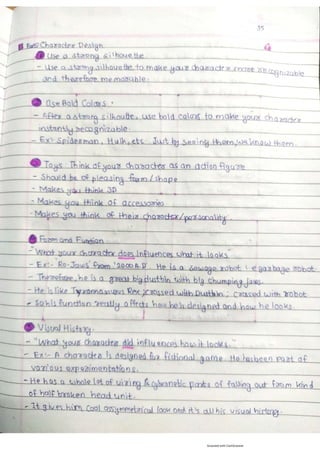 35
Character Design
① Use a strong silhouette.
- Use a strong silhouette to make your character more recognizable
and therefore memorable.
② Use Bold Colors.
- After a strong silhoutte, use bold colors to make your character
instantly recognizable.
- Ex:- Spiderman, Hulk, ets Just by seeing them, we know them.
③ Toys Think of your character as an action figure
- Should be of pleasing form/shape
- Makes you think 3D
- Makes you think of accessories
- Makes you think of their character/personality.
④ Form and Function
- "What your character does influences what it looks.
- Ex:- Ro-Jaws from '2000 A.D'. He is a sewage robot i.e garbage robot
- Therefore, he is a great big dustbin with big chumping jaws.
- He is like Tyrannosaurus Rex crossed with Dustbin, crossed with robot
- So his function really affects how he is designed and how he looks.
⑤ Visual History.
- "What your character did influences how it looks."
- Ex:- A character is designed for fictional game. He has been part of
various experimentations.
- He has a whole lot of wiring & cybernetic parts of falling out from kind
of half broken head unit.
- It gives him cool assymmetrical look and it's all his visual history.
Scanned with CamScanner